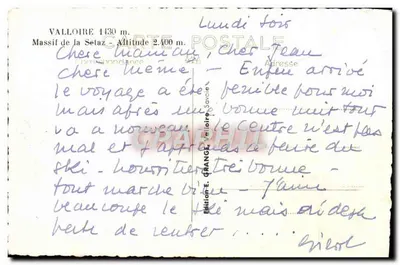 Lundi soir
VALLOIRE 1430 m.
Massif de la Setaz - Altitude 2.400 m.
CARTE POSTALE
Correspondance
Adresse
Chère Maman, Cher Jean
Chère Mémé - Enfin arrivé
le voyage a été pénible pour moi
mais après une bonne nuit tout
va a nouveau. Le Centre n'est pas
mal et j'ai fait du
ski - nourriture très bonne -
tout marche bien - J'aime
beaucoup le ski mais
de rentrer .....
Edition E. GRANGE, Valloire (Savoie)